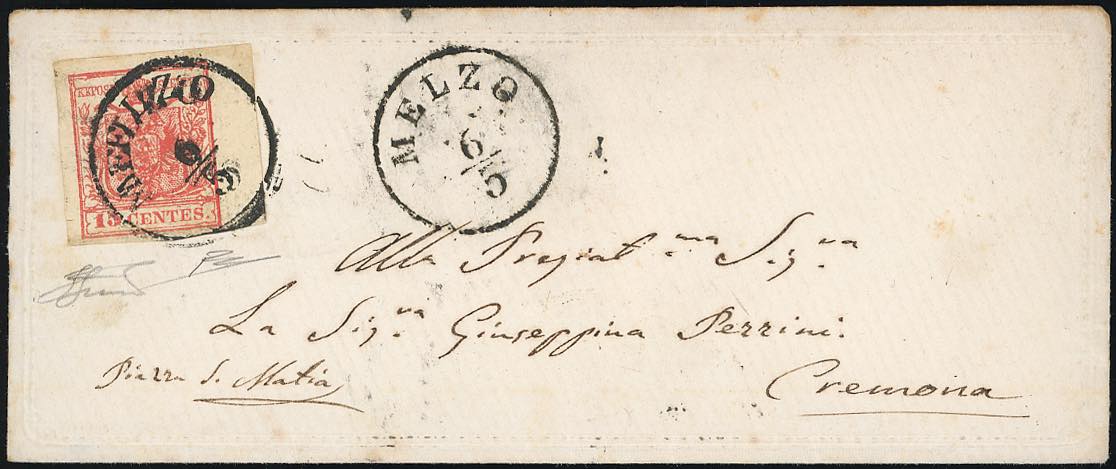 MELZO
6/5
15 CENTES.
MELZO
6/5
Alla Pregiat.ma Sig.ra
La Sig.ra Giuseppina Perrini.
Piazza S. Matia
Cremona